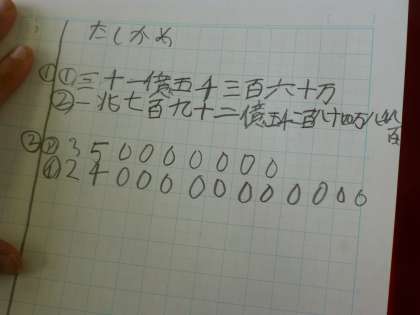 たしかめ
① ①三十一億五千三百六十万
②一兆七百九十二億五千二百八十四万八千九百
② ③ 3500000000
④ 24000000000000